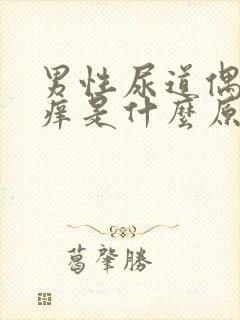 男性尿道偶
痒是什麼原
葛肇勝